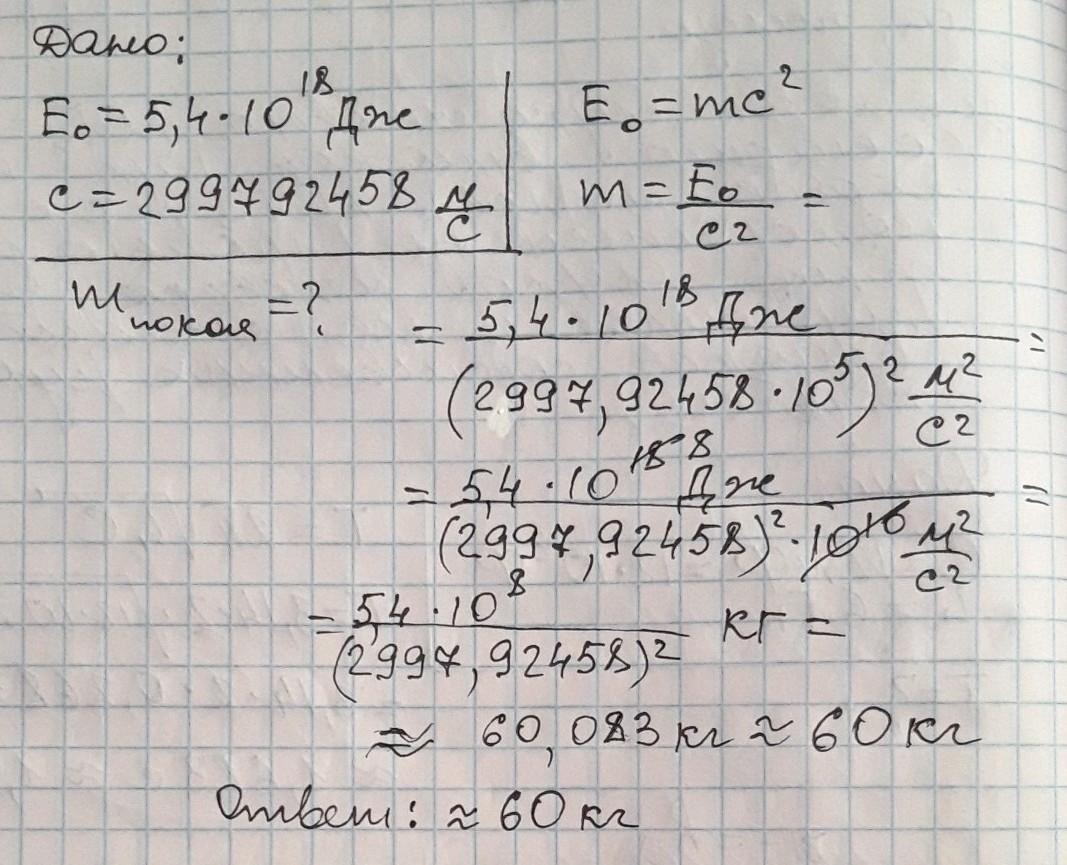 Дано:
E₀ = 5,4·10¹⁸ Дж
c = 299792458 м/с
m покоя = ?
E₀ = mc²
m = E₀/c² =
= 5,4·10¹⁸ Дж / (2997,92458·10⁵)² м²/с² =
= 5,4·10¹⁸ ⁸ Дж / (2997,92458)²·10¹⁰ м²/с² =
= 5,4·10⁸ / (2997,92458)² кг =
≈ 60,083 кг ≈ 60 кг
Ответ: ≈ 60 кг